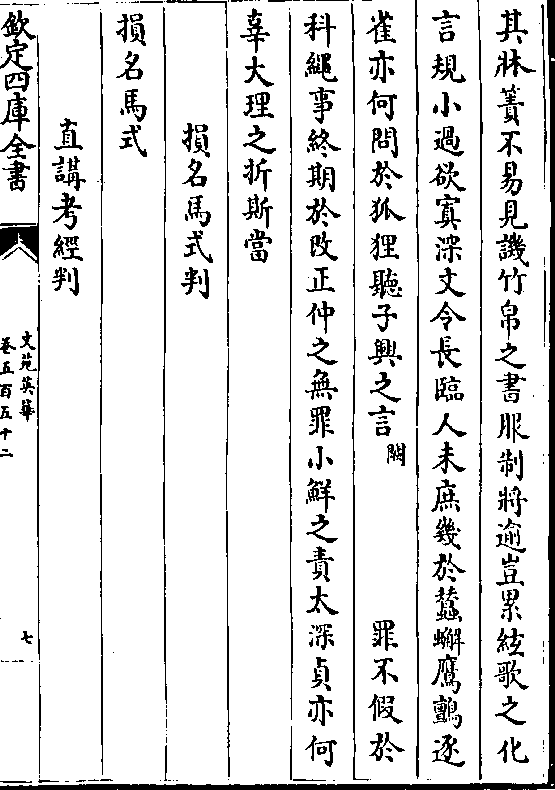 其牀簀不易見譏竹帛之書服制將逾豈累絃歌之化
言規小過欲寘深文令長臨人未庶幾於蟊蠏鷹鸇逐
雀亦何問於狐狸聽子輿之言闕罪不假於
科繩事終期於改正仲之無罪小鮮之責太深貞亦何
辜大理之折斯當
損名馬式判
損名馬式
直講考經判
欽定四庫全書
文苑英華
卷五百五十二
七